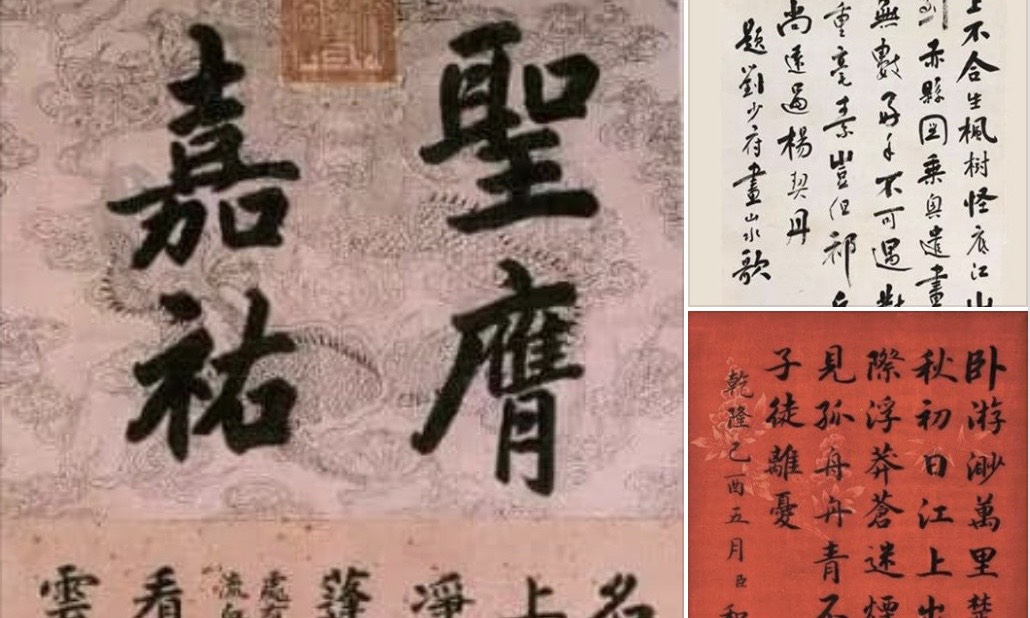 聖膺
嘉祐
上
淨
蓬
看
雲
上不合生楓樹怪底江山
赤縣圖乘興遣畫
無數好手不可遇對
重毫素豈但祁
尚遠過楊契丹
題劉少府畫山水歌
卧游渺萬里楚
秋初日江上出
際浮莽蒼迷煙
見孤舟舟青不
子徒離憂
乾隆己酉五月臣和